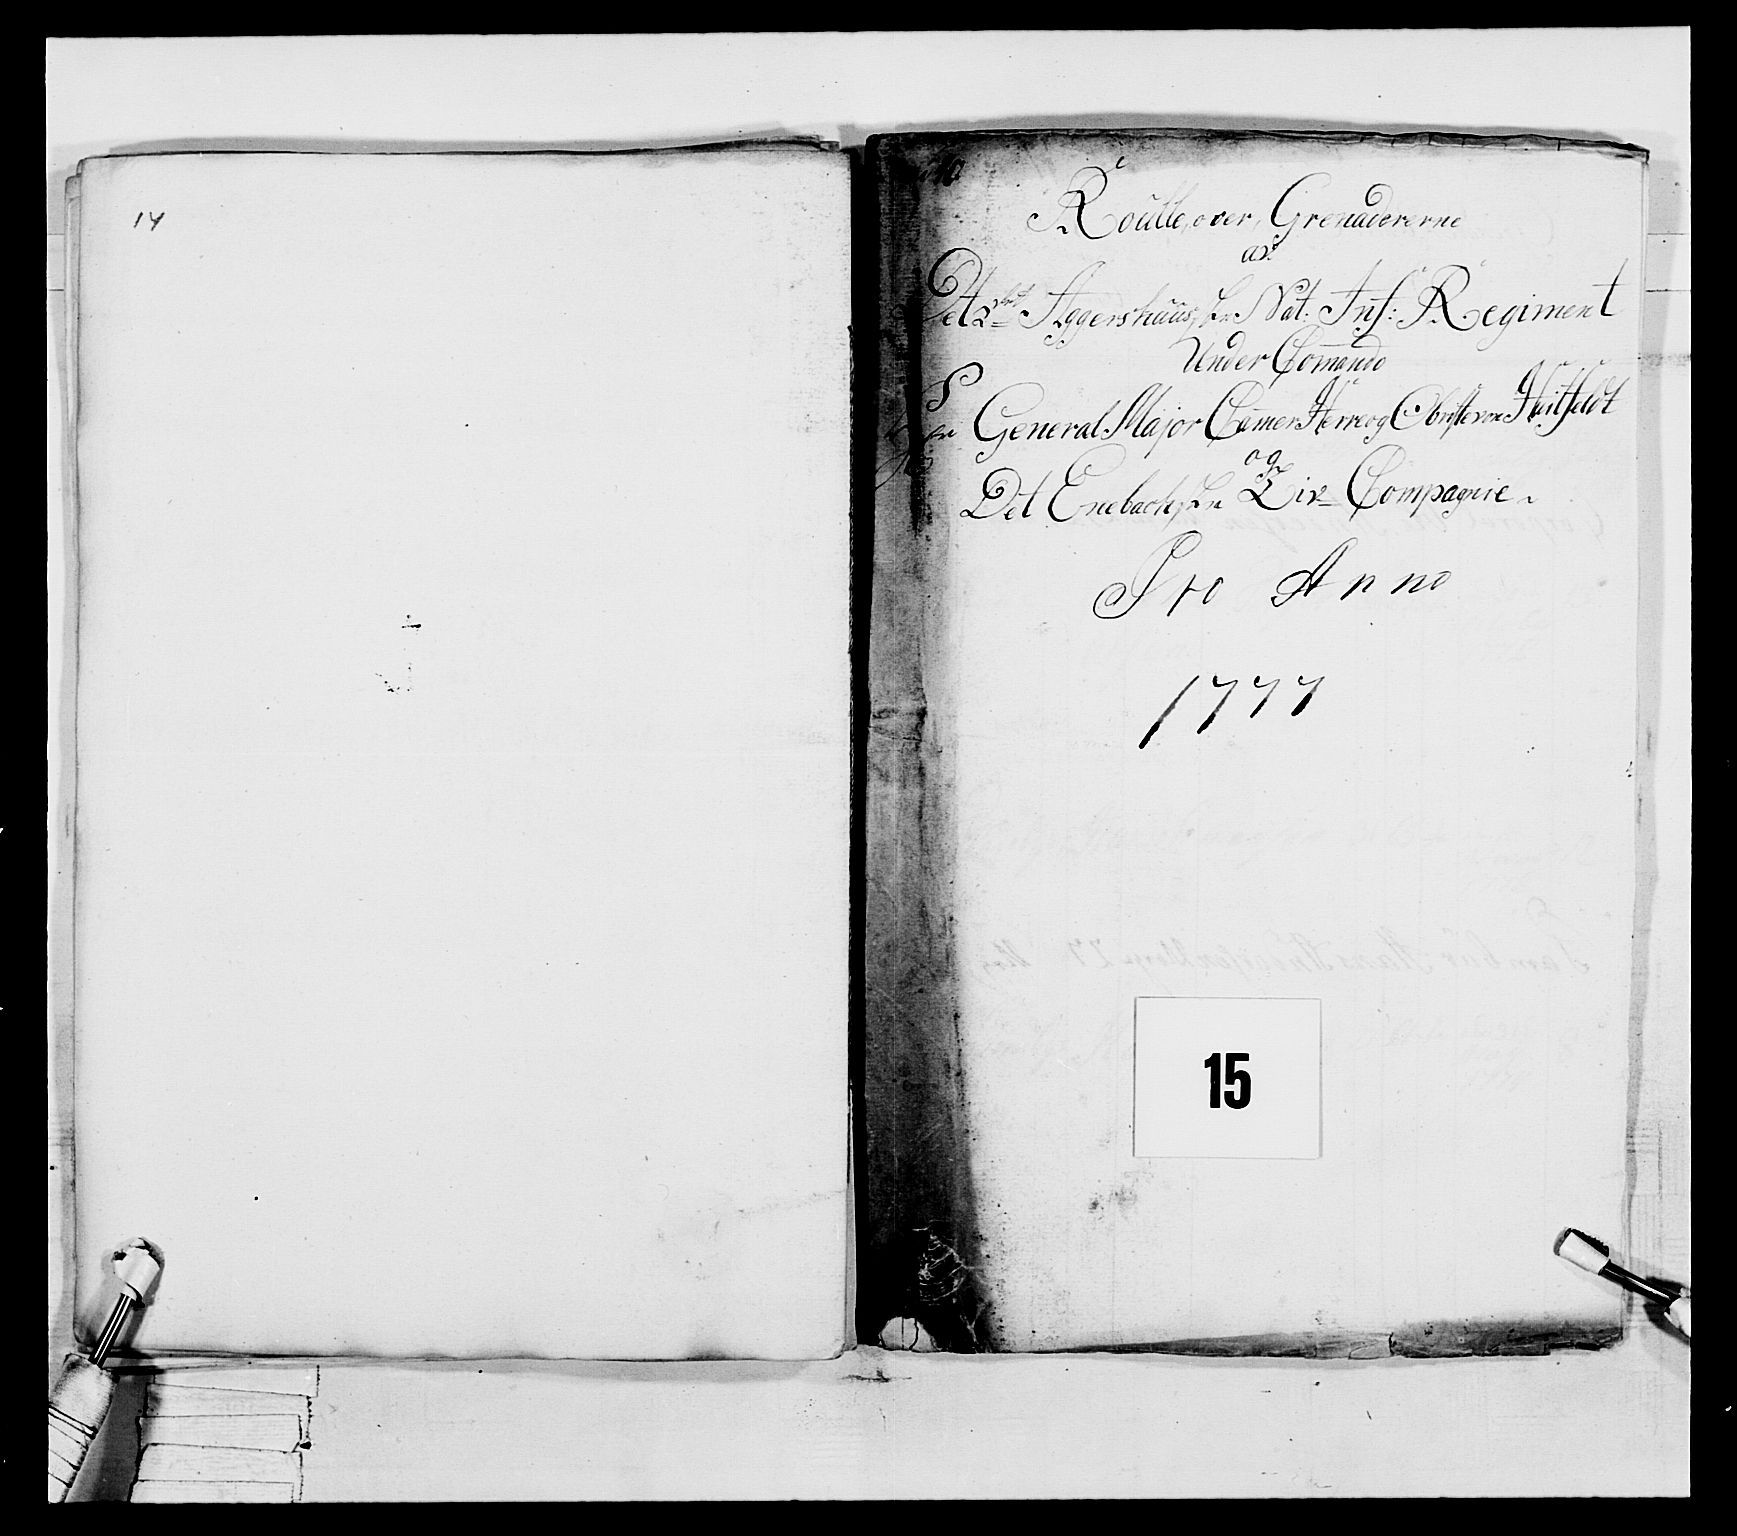 14
Roulle over Grenadererne
av
Det 2det Aggershuus, ke Nat: Inf: Regiment
Under Comando
General Major Camer Herre og Obriste von Huitfeldt
og
Det Enebach, ke Liv Compagnie
Pro Anno
1777
15